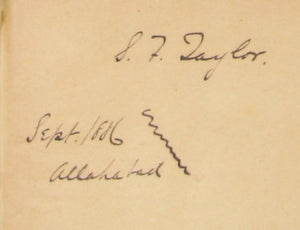 S. F. Taylor.
Sept. 1886
Allahabad